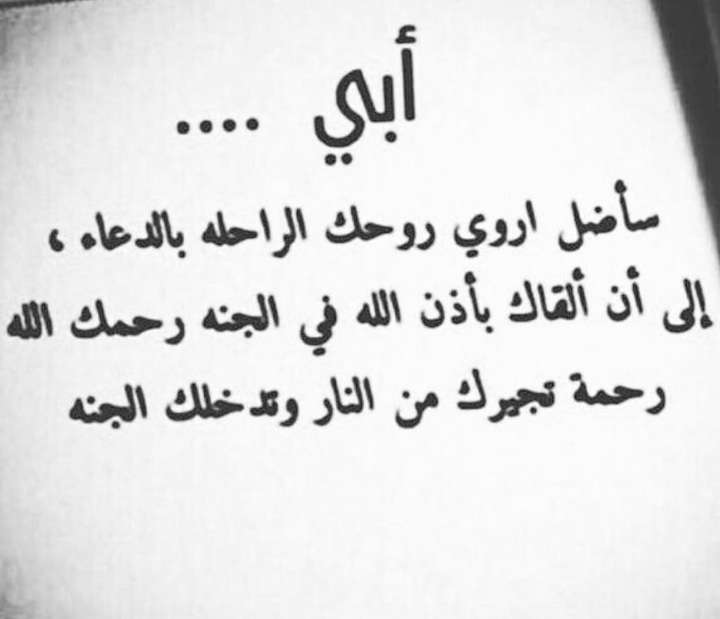 أبي ....
سأضل اروي روحك الراحله بالدعاء ،
إلى أن ألقاك بأذن الله في الجنه رحمك الله
رحمة تجيرك من النار وتدخلك الجنه